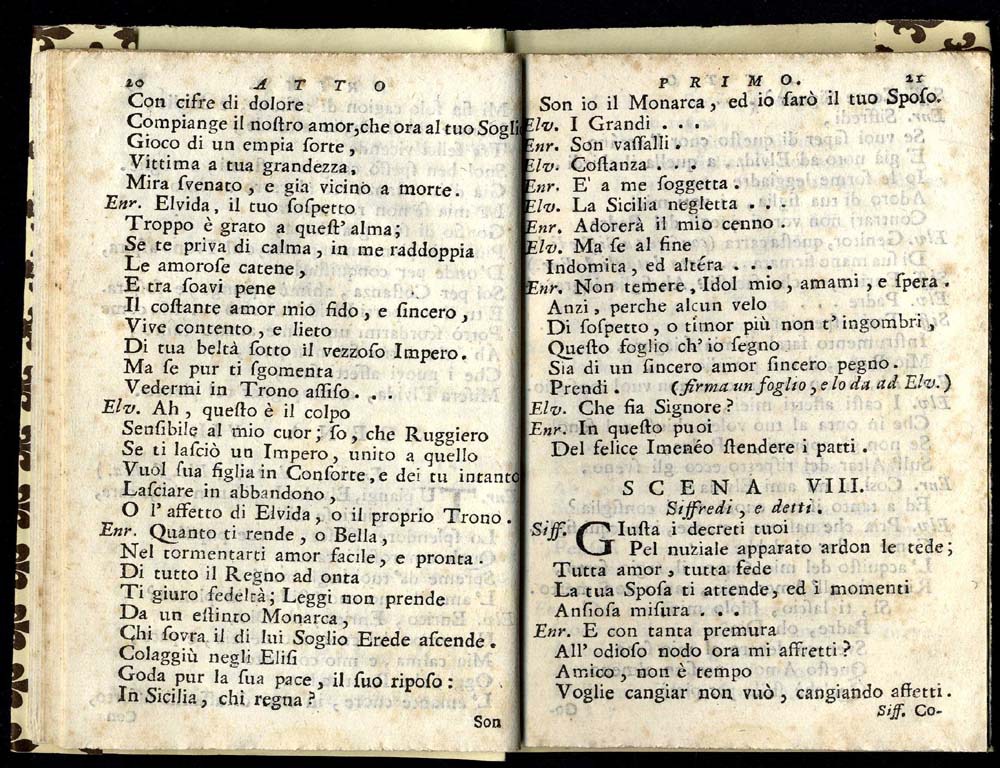 20 ATTO
Con cifre di dolore
Compiange il noſtro amor, che ora al tuo Soglio
Gioco di un empia ſorte,
Vittima a tua grandezza,
Mira ſvenato, e già vicino a morte.
Enr. Elvida, il tuo ſoſpetto
Troppo è grato a queſt' alma;
Se te priva di calma, in me raddoppia
Le amoroſe catene,
E tra ſoavi pene
Il coſtante amor mio fido, e ſincero,
Vive contento, e lieto
Di tua beltà ſotto il vezzoſo Impero.
Ma ſe pur ti ſgomenta
Vedermi in Trono aſſiſo. . .
Elv. Ah, queſto è il colpo
Senſibile al mio cuor; ſo, che Ruggiero
Se ti laſciò un Impero, unito a quello
Vuol ſua figlia in Conſorte, e dei tu intanto
Laſciare in abbandono,
O l' affetto di Elvida, o il proprio Trono.
Enr. Quanto ti rende, o Bella,
Nel tormentarti amor facile, e pronta.
Di tutto il Regno ad onta
Ti giuro fedeltà; Leggi non prende
Da un eſtinto Monarca,
Chi ſovra il di lui Soglio Erede aſcende.
Colaggiù negli Eliſi
Goda pur la ſua pace, il ſuo ripoſo:
In Sicilia, chi regna?
Son
PRIMO. 21
Son io il Monarca, ed io ſarò il tuo Spoſo.
Elv. I Grandi . . .
Enr. Son vaſſalli.
Elv. Coſtanza . . .
Enr. E' a me ſoggetta.
Elv. La Sicilia negletta . . .
Enr. Adorerà il mio cenno.
Elv. Ma ſe al fine
Indomita, ed altéra . . .
Enr. Non temere, Idol mio, amami, e ſpera.
Anzi, perche alcun velo
Di ſoſpetto, o timor più non t' ingombri,
Queſto foglio ch' io ſegno
Sia di un ſincero amor ſincero pegno.
Prendi. (firma un foglio, e lo da ad Elv.)
Elv. Che fia Signore?
Enr. In queſto puoi
Del felice Imenéo ſtendere i patti.
SCENA VIII.
Siffredi, e detti.
Siff. GIuſta i decreti tuoi
Pel nuziale apparato ardon le tede;
Tutta amor, tutta fede
La tua Spoſa ti attende, ed i momenti
Anſioſa miſura . . .
Enr. E con tanta premura
All' odioso nodo ora mi affretti?
Amico, non è tempo
Voglie cangiar non vuò, cangiando affetti.
Siff. Co-